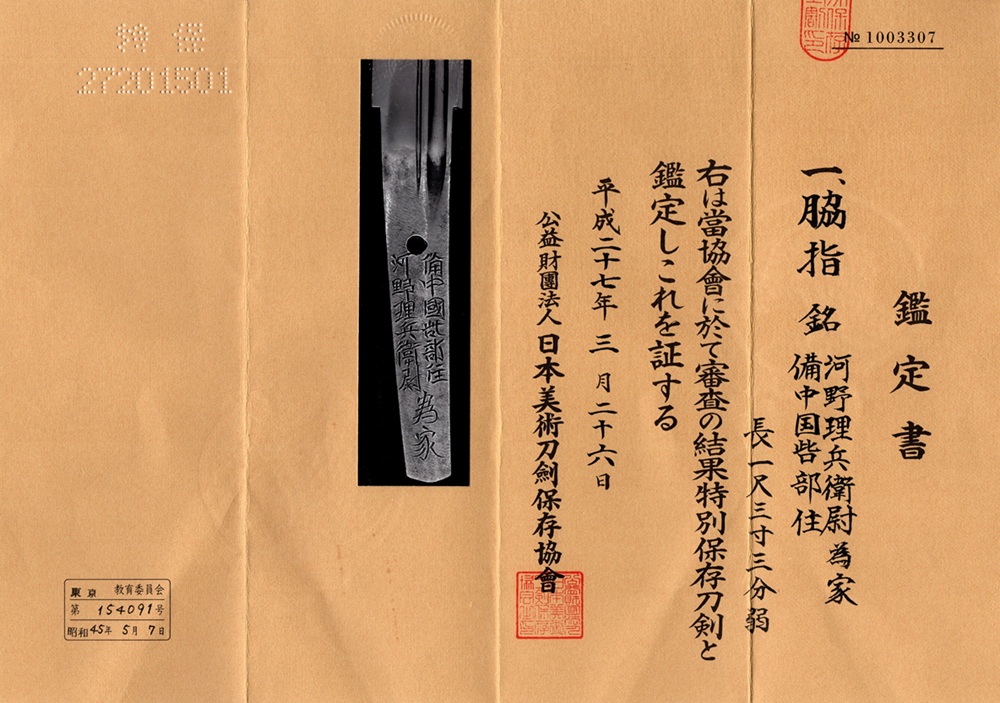 № 1003307
鑑定書
一、脇指 銘 河野理兵衛尉為家
備中国呰部住
長一尺三寸三分弱
右は當協會に於て審査の結果特別保存刀剣と
鑑定しこれを証する
平成二十七年三月二十六日
公益財團法人日本美術刀劍保存協會
備中國呰部住
河野理兵衛尉為家
特保
27201501
東京 教育委員会
第154091号
昭和45年5月7日